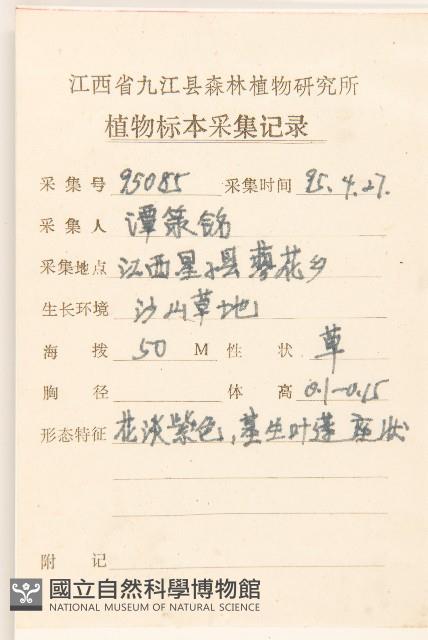 江西省九江县森林植物研究所
植物标本采集记录
采集号 95085 采集时间 95.4.27.
采集人 谭策铭
采集地点 江西星子县蓼花乡
生长环境 沙山草地
海拨 50 M 性状 草
胸径 体高 0.1-0.15
形态特征 花淡紫色,基生叶莲座状
附记
國立自然科學博物館
NATIONAL MUSEUM OF NATURAL SCIENCE